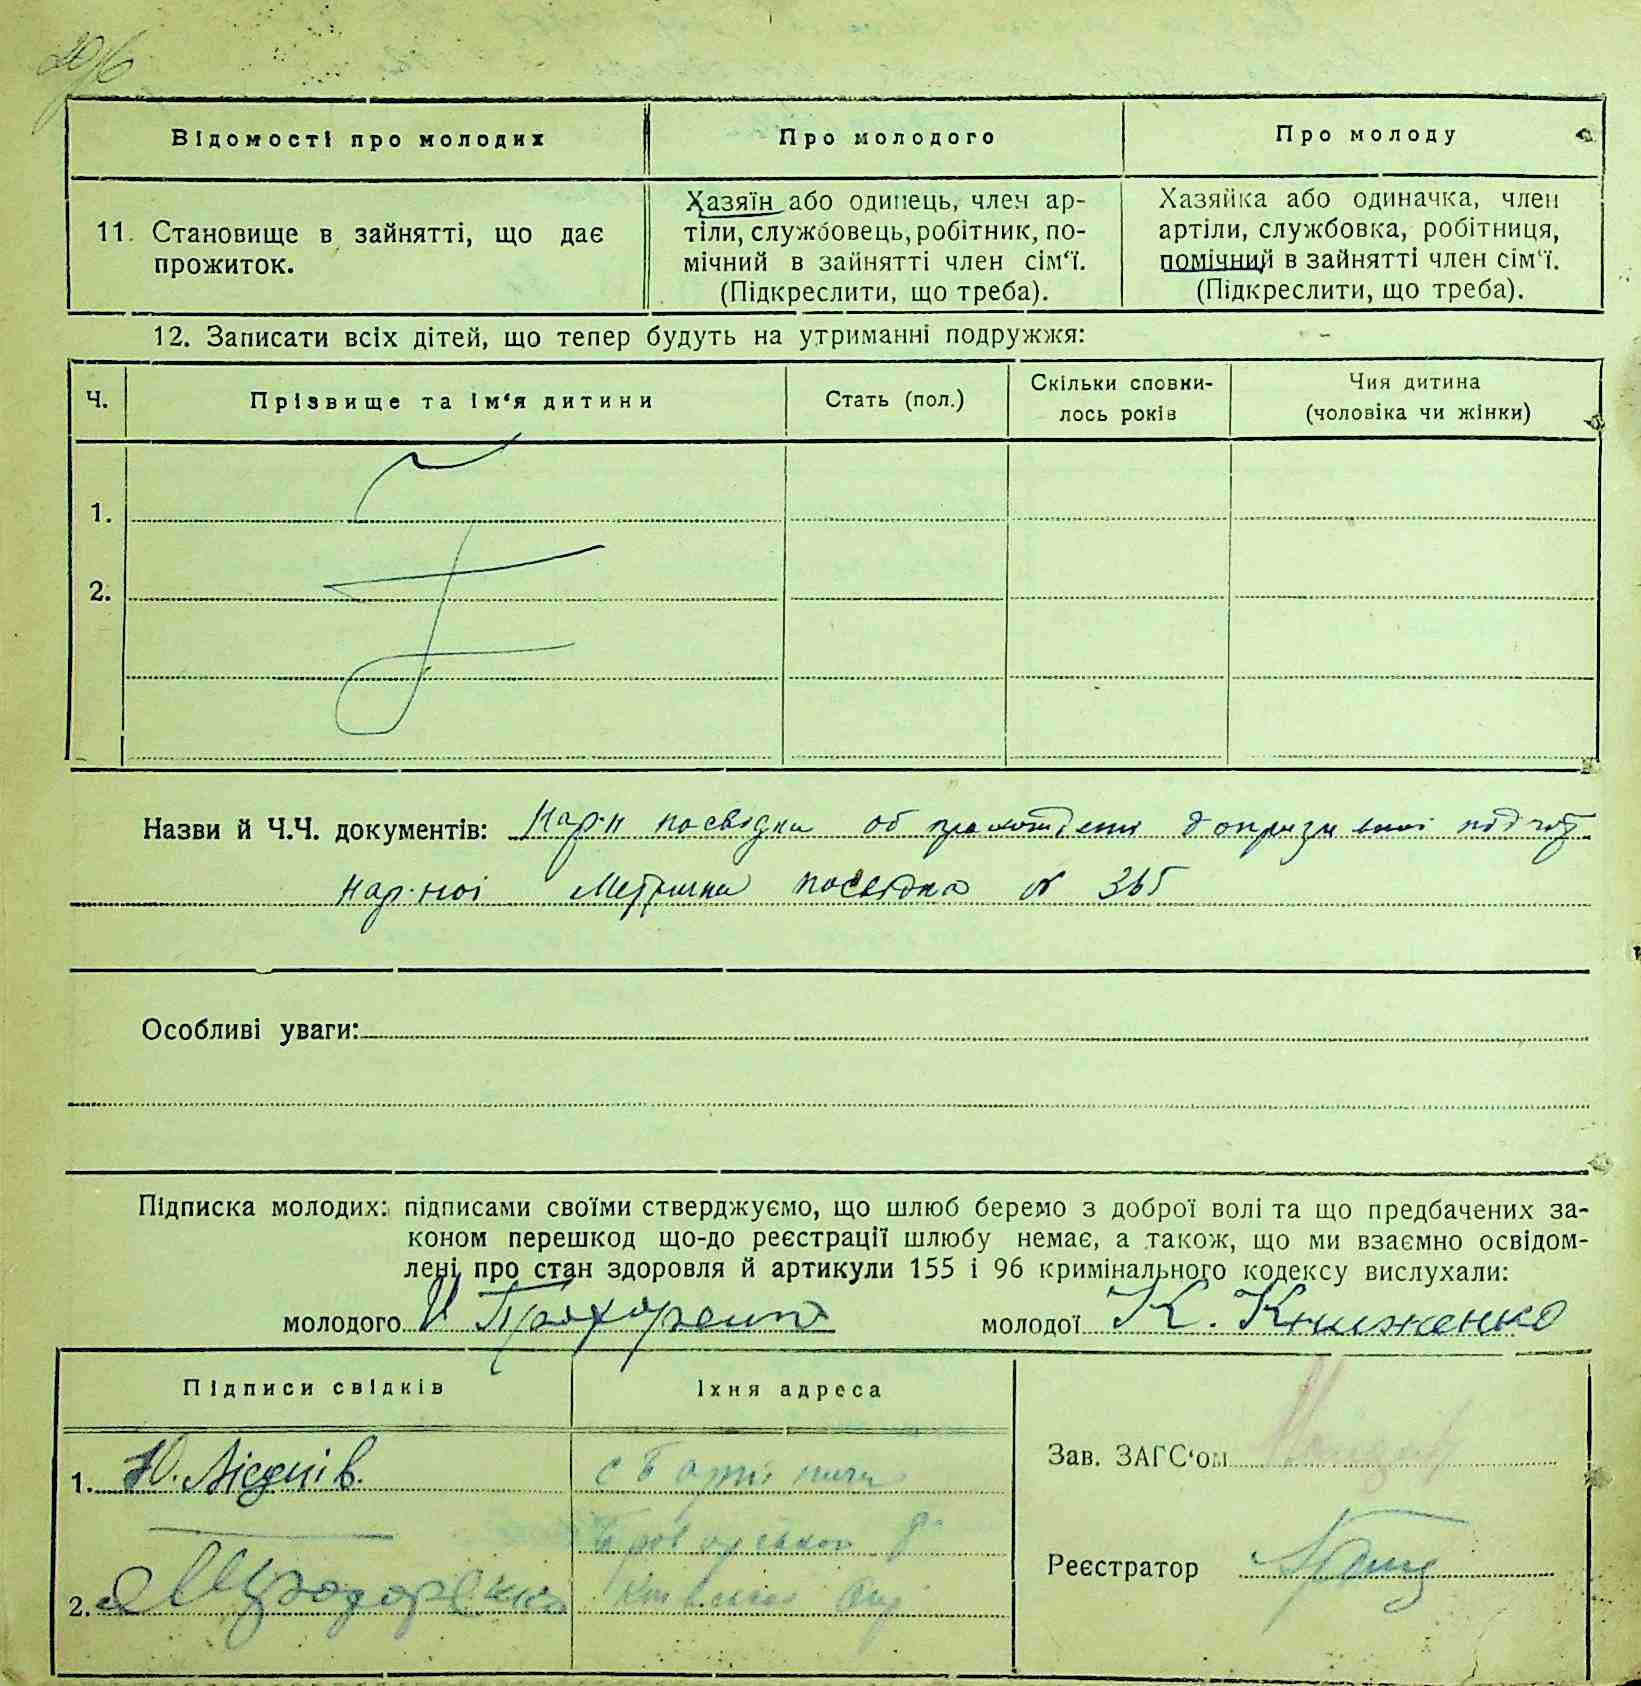 Відомості про молодих
Про молодого
Про молоду
11. Становище в зайнятті, що дає
прожиток.
Хазяїн або одинець, член ар-
тіли, службовець, робітник, по-
мічний в зайнятті член сім'ї.
(Підкреслити, що треба).
Хазяйка або одиначка, член
артіли, службовка, робітниця,
помічний в зайнятті член сім'ї.
(Підкреслити, що треба).
12. Записати всіх дітей, що тепер будуть на утриманні подружжя:
Ч.
Прізвище та ім'я дитини
Стать (пол.)
Скільки сповни-
лось років
Чия дитина
(чоловіка чи жінки)
1.
2.
Назви й Ч.Ч. документів: посвідка об
Метрична посвідка № 365
Особливі уваги:
Підписка молодих: підписами своїми стверджуємо, що шлюб беремо з доброї волі та що предбачених за-
коном перешкод що-до реєстрації шлюбу немає, а також, що ми взаємно освідом-
лені про стан здоровля й артикули 155 і 96 кримінального кодексу вислухали:
молодого Прохоренко молодої К. Книженко
Підписи свідків
Їхня адреса
1. Ю.
2.
Зав. ЗАГС'ом
Реєстратор